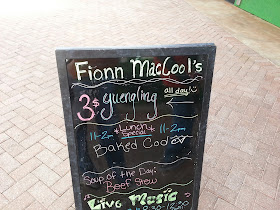 Fionn MacCool's
3$ yuengling all day!
11-2pm *Lunch Special* 11-2pm
Baked Cod
Soup of the Day:
Beef Stew
Live Music